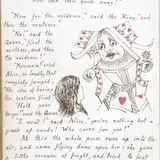 "Now for the evidence," said the King, "and
then the sentence."
"No!" said the
Queen, "first the
sentence, and then
the evidence!"
"Nonsense!" cried
Alice, so loudly that
everybody jumped,
"the idea of having
the sentence first!"
"Hold your
tongue!" said the Queen.
"I won't!" said Alice, "you're nothing but a
pack of cards! Who cares for you?"
At this the whole pack rose up into the
air, and came flying down upon her: she gave
a little scream of fright, and tried to beat